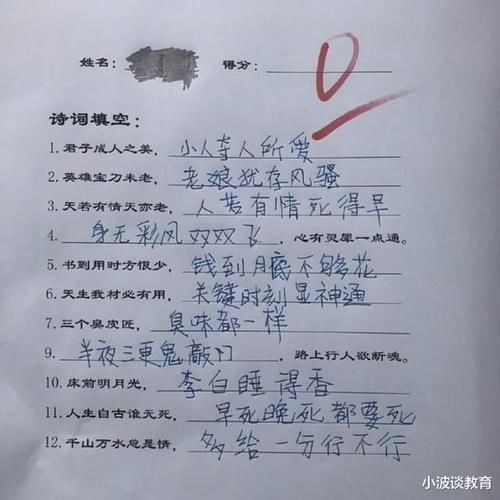 姓名: 得分: 0
诗词填空:
1.君子成人之美, 小人夺人所爱
2.英雄宝刀未老, 老娘犹存风骚
3.天若有情天亦老, 人若有情死得早
4. 身无彩风双双飞, 心有灵犀一点通。
5.书到用时方恨少, 钱到月底不够花
6.天生我材必有用, 关键时刻显神通
7.三个臭皮匠, 臭味都一样
9. 半夜三更鬼敲门, 路上行人欲断魂。
10.床前明月光, 李白睡得香
11.人生自古谁无死, 早死晚死都要死
12.千山万水总是情, 多给一分行不行
小波谈教育